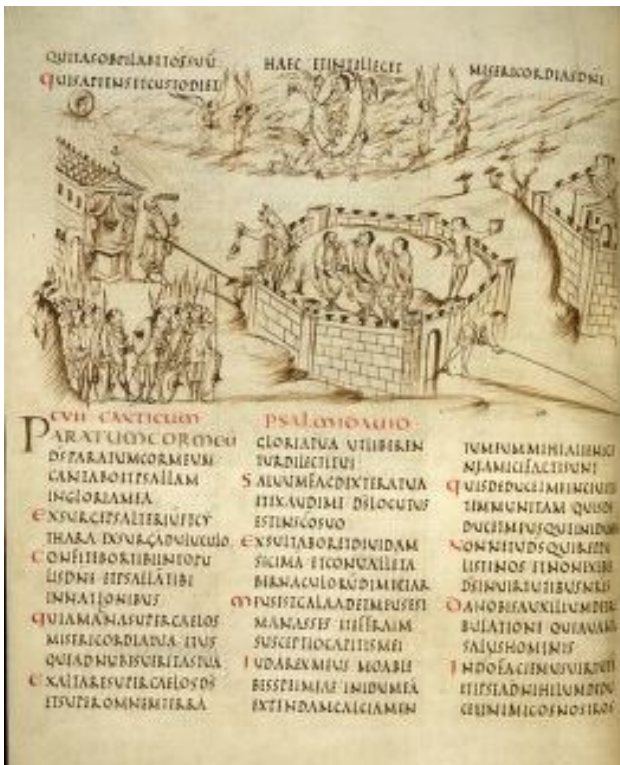 QUIS SAPIENS ET CUSTODIET
HAEC ET INTELLEGET
MISERICORDIAS DNI
CVII CANTICUM
PSALMI DAVID
PARATUM COR MEU
DS PARATUM COR MEUM
CANTABO ET PSALLAM
IN GLORIA MEA
EXSURGE PSALTERIU ET CY
THARA EXSURGA DILUCULO
CONFITEBOR TIBI IN POPU
LIS DNE ET PSALLA TIBI
IN NATIONIBUS
QUIA MAGNA SUPER CAELOS
MISERICORDIA TUA ET US
QUE AD NUBES UERITAS TUA
EXALTARE SUPER CAELOS DS
ET SUPER OMNEM TERRA
GLORIA TUA UT LIBEREN
TUR DILECTI TUI
SALUUM ME FAC DEXTERA TUA
ET EXAUDI ME DS LOCUTUS
EST IN SCO SUO
EXSULTABO ET DIUIDAM
SICIMA ET CONUALLE TA
BERNACULORU DIMETIAR
MEUS EST GALAAD ET MEUS EST
MANASSES ET EFFRAIM
SUSCEPTIO CAPITIS MEI
IUDA REX MEUS MOAB LE
BES SPEI MEAE IN IDUMEA
EXTENDAM CALCIAMEN
TUM EUM MIHI ALIENIGE
NE AMICI FACTI SUNT
QUIS DEDUCET ME IN CIUITA
TEM MUNITAM QUIS DE
DUCET ME USQUE IN IDUM
NONNE TU DS QUI REPU
LISTI NOS ET NON EXIBIS
DS IN UIRTUTIBUS NRIS
DA NOBIS AUXILIUM DE TRI
BULATIONE QUIA UANA
SALUS HOMINIS
IN DO FACIEMUS UIRTUTE
ET IPSE AD NIHILUM DEDU
CET INIMICOS NOSTROS